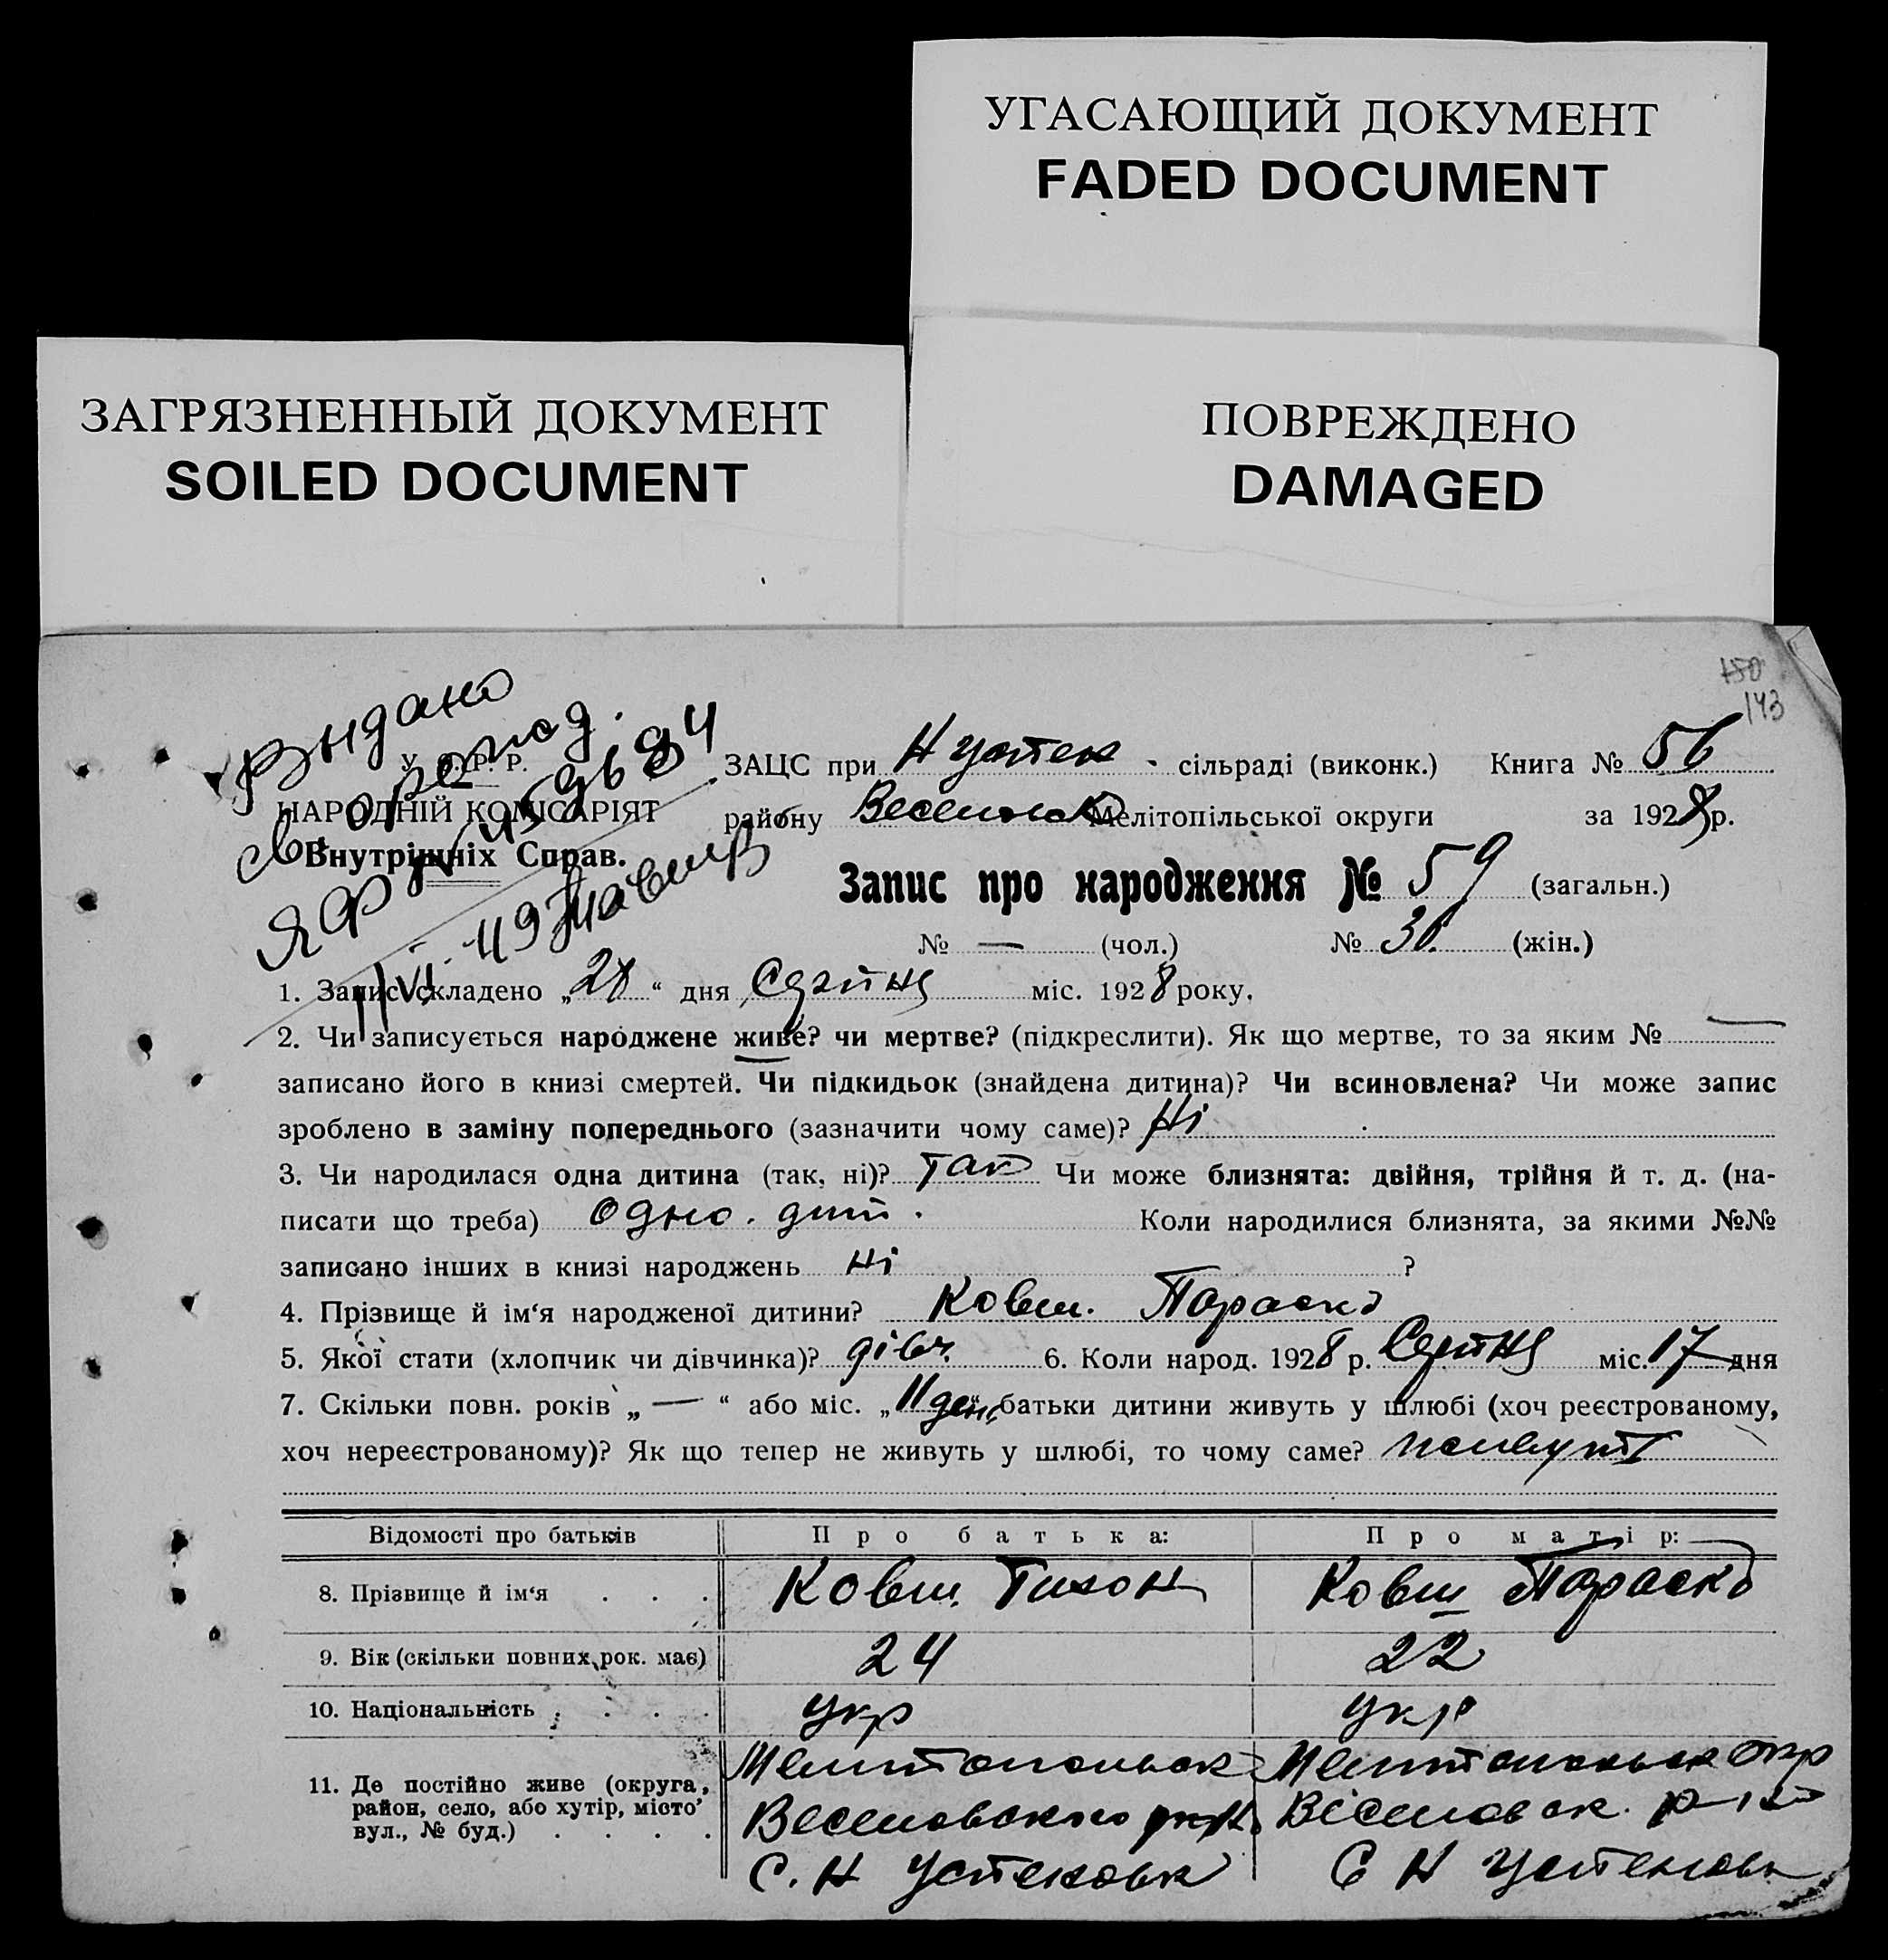 УГАСАЮЩИЙ ДОКУМЕНТ
FADED DOCUMENT
ЗАГРЯЗНЕННЫЙ ДОКУМЕНТ
SOILED DOCUMENT
ПОВРЕЖДЕНО
DAMAGED
150
143
Видано
У. С. Р. Р.
НАРОДНІЙ КОМІСАРІЯТ
Внутрішніх Справ.
ЗАЦС при Н Устек - сільраді (виконк.) Книга № 56
району Веселовск Мелітопільської округи за 1928 р.
Запис про народження № 59 (загальн.)
№ — (чол.) № 36. (жін.)
1. Запис складено „28“ дня Серпня міс. 1928 року.
2. Чи записується народжене живе? чи мертве? (підкреслити). Як що мертве, то за яким № —
записано його в книзі смертей. Чи підкидьок (знайдена дитина)? Чи всиновлена? Чи може запис
зроблено в заміну попереднього (зазначити чому саме)? Ні
3. Чи народилася одна дитина (так, ні)? Так Чи може близнята: двійня, трійня й т. д. (на-
писати що треба) Одно. дит. Коли народилися близнята, за якими №№
записано інших в книзі народжень ні ?
4. Прізвище й ім‘я народженої дитини? Ковш. Параска
5. Якої стати (хлопчик чи дівчинка)? дівч. 6. Коли народ. 1928 р. Серпня міс. 17 дня
7. Скільки повн. років „ — “ або міс. „ 11 ден. батьки дитини живуть у шлюбі (хоч реєстрованому,
хоч нереєстрованому)? Як що тепер не живуть у шлюбі, то чому саме?
Відомості про батьків Про батька: Про матір:
8. Прізвище й ім‘я . . . Ковш. Тихон Ковш Параска
9. Вік (скільки повних рок. має) 24 22
10. Національність . . . . укр укр
11. Де постійно живе (округа, район, село, або хутір, місто, вул., № буд.) . . . .
Мелитопольск Мелитопольск окр
Веселовского Веселовск. р-
С. Н Устековк С Н Устековк